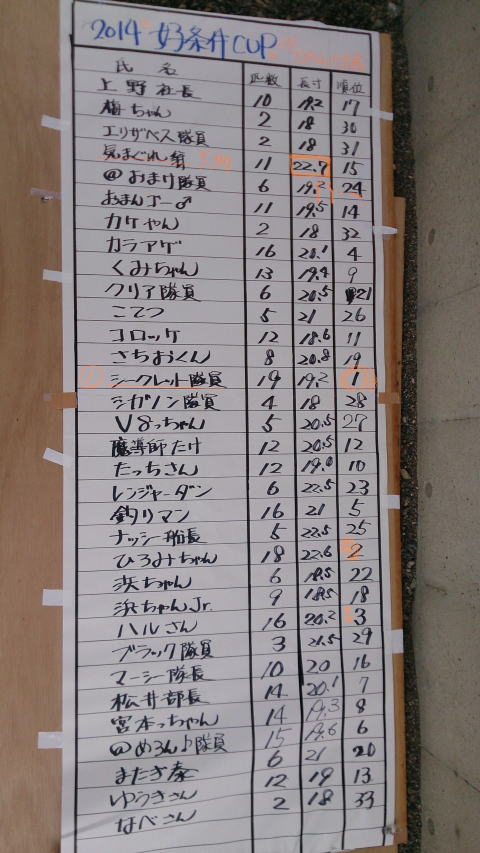 2014 好条件CUP
氏名 匹数 長寸 順位
上野社長 10 19.2 17
梅ちゃん 2 18 30
エリザベス隊員 2 18 31
気まぐれ 11 22.7 15
@おまけ隊員 6 19.2 24
11 19.5 14
カケやん 2 18 32
カラアゲ 16 20.1 4
くみちゃん 13 19.4 9
クリア隊員 6 20.5 21
こてつ 5 21 26
コロッケ 12 18.6 11
さちおくん 8 20.8 19
シークレット隊員 19 19.2 1
シガソン隊員 4 18 28
V8っちゃん 5 20.5 27
魔導師たけ 12 20.5 12
たっちさん 12 19.0 10
レンジャーダン 6 22.5 23
釣りマン 16 21 5
ナッシー船長 5 22.5 25
ひろみちゃん 18 22.6 2
浜ちゃん 6 19.5 22
浜ちゃんJr. 9 18.5 18
ハルさん 16 20.2 3
ブラック隊員 3 21.5 29
マーシー隊長 10 20 16
松井部長 14 20.1 7
宮本っちゃん 14 19.3 8
@めろん♪隊員 15 19.6 6
またぎ奏 6 21 20
ゆうきさん 12 19 13
なべさん 2 18 33